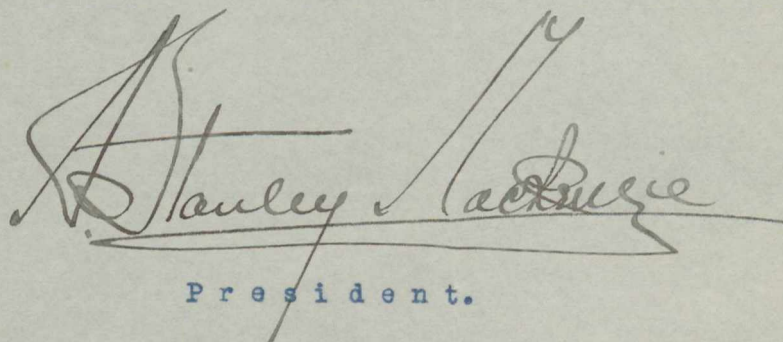 A. Stanley Mackenzie
President.